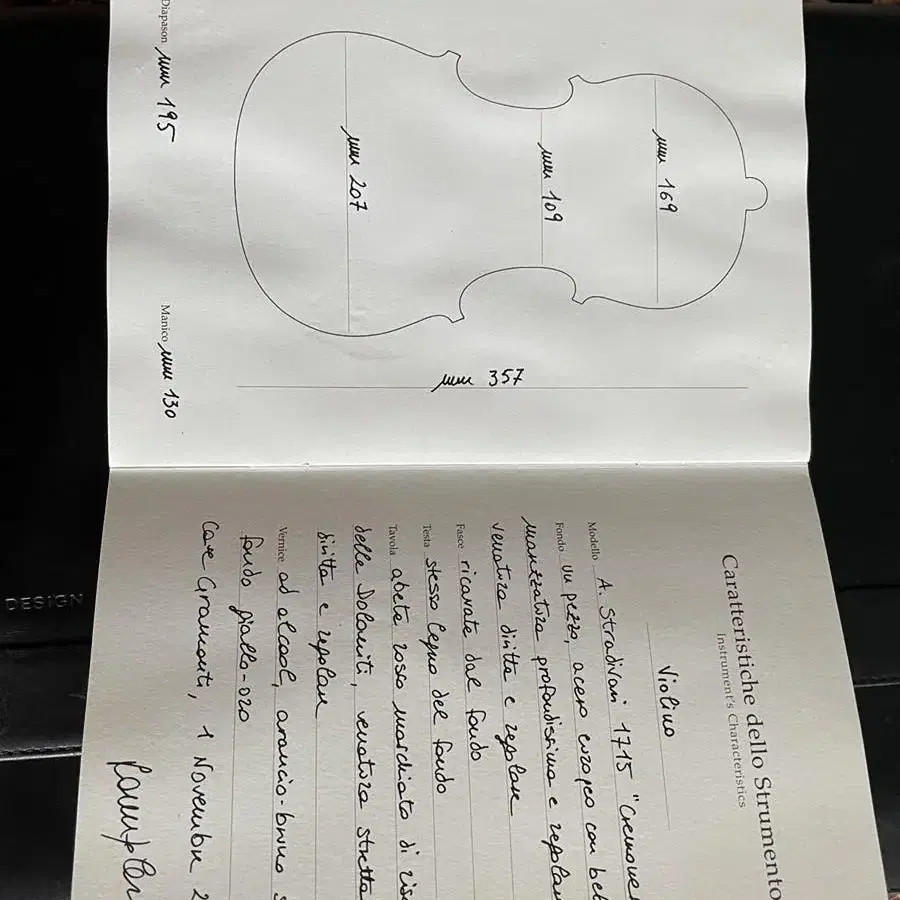 mm 169
mm 109
mm 207
mm 357
Diapason mm 195 Manico mm 130
Caratteristiche dello Strumento
Instrument's Characteristics
Violino
Modello A. Stradivari 1715 "Cremone
Fondo un pezzo, acero europeo con bel
marezzatura profondissima e regolar
venatura diritta e regolare
Fasce ricavate dal fondo
Testa stesso legno del fondo
Tavola abete rosso marchiato di ris
delle Dolomiti, venatura stretta
diritta e regolare
Vernice ad alcool, arancio-bruno s
fondo giallo-oro
1 Novembre 2
DESIGN